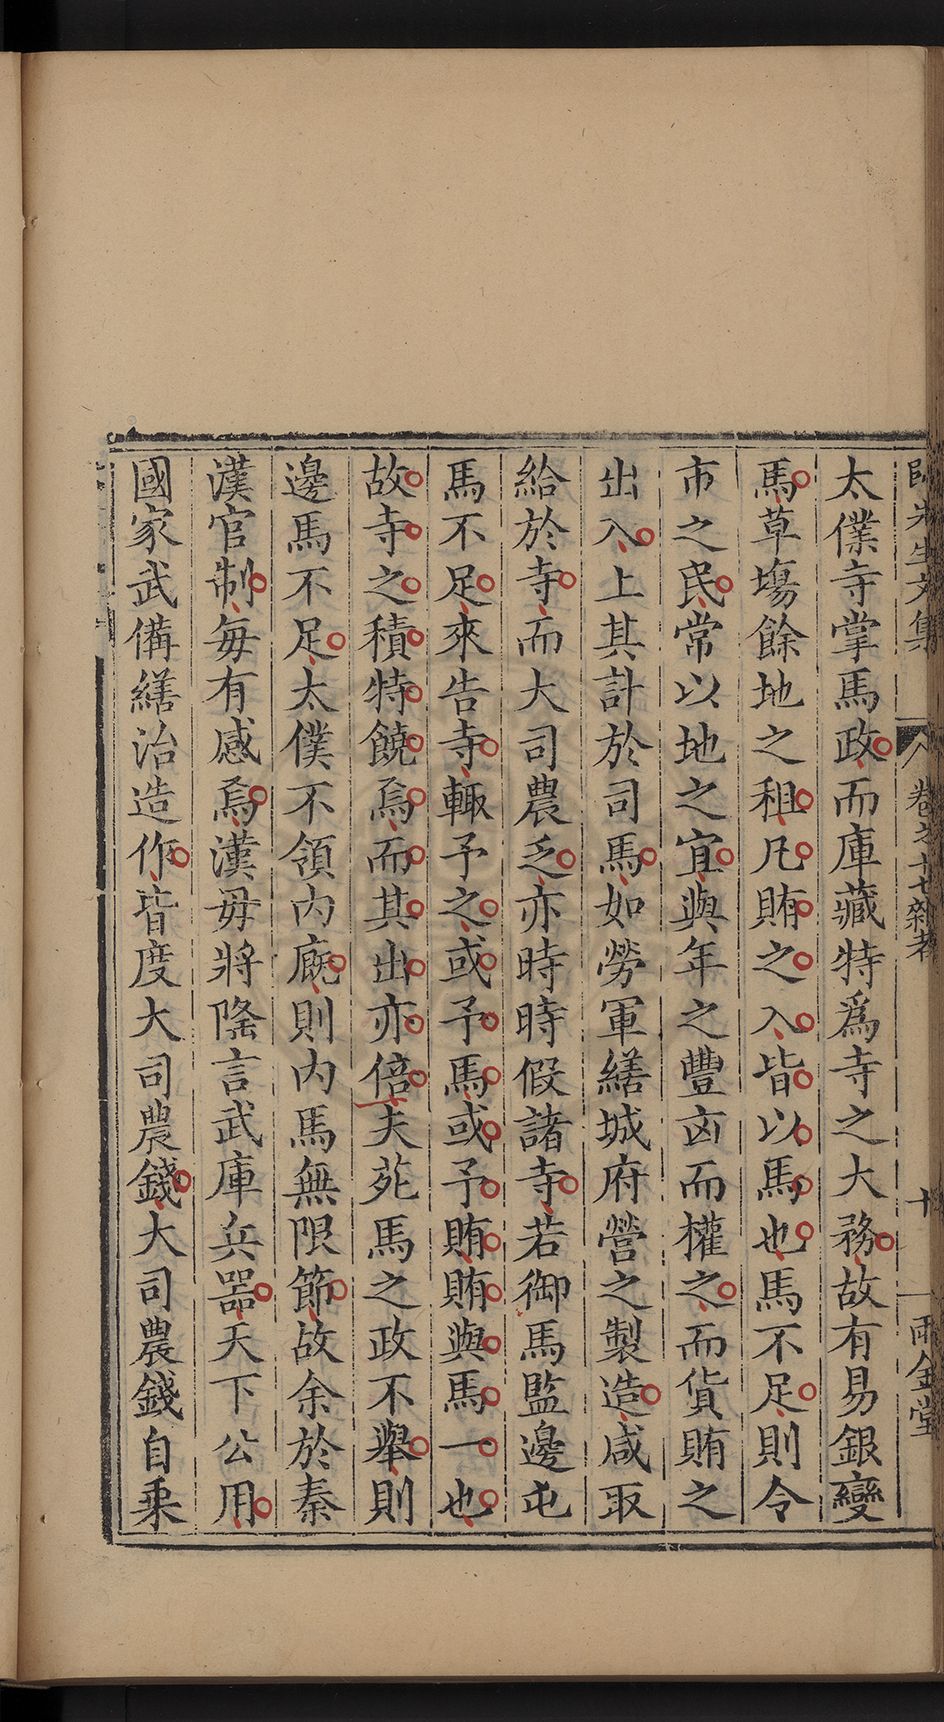 歸先生文集 卷之十七雜著 十 兩金堂
太僕寺掌馬政而庫藏特爲寺之大務故有易銀變
馬草塲餘地之租凡賄之入皆以馬也馬不足則令
市之民常以地之宜與年之豐㐫而權之而貨賄之
出入上其計於司馬如勞軍繕城府營之製造咸取
給於寺而大司農乏亦時時假諸寺若御馬監邊屯
馬不足來告寺輙予之或予馬或予賄賄與馬一也
故寺之積特饒焉而其出亦倍夫苑馬之政不舉則
邊馬不足太僕不領内廐則内馬無限節故余於秦
漢官制每有感焉漢毋將隆言武庫兵噐天下公用
國家武備繕治造作皆度大司農錢大司農錢自乘